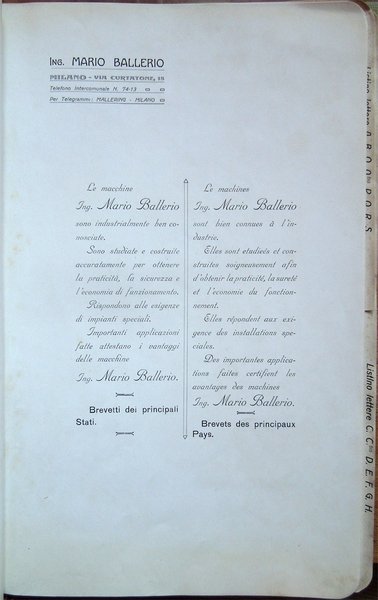 Ing. MARIO BALLERIO
MILANO - VIA CURTATONE, 15
Telefono Intercomunale N. 74-13
Per Telegrammi: MALLERING - MILANO
Le macchine
Ing. Mario Ballerio
sono industrialmente ben co-
nosciute.
Sono studiate e costruite
accuratamente per ottenere
la praticità, la sicurezza e
l'economia di funzionamento.
Rispondono alle esigenze
di impianti speciali.
Importanti applicazioni
fatte attestano i vantaggi
delle macchine
Ing. Mario Ballerio.
Brevetti dei principali
Stati.
Le machines
Ing. Mario Ballerio
sont bien connues à l'in-
dustrie.
Elles sont etudieés et con-
struites soigneusement afin
d'obtenir la praticité, la sureté
et l'économie du fonction-
nement.
Elles répondent aux exi-
gence des installations spe-
ciales.
Des importantes applica-
tions faites certifient les
avantages des machines
Ing. Mario Ballerio.
Brevets des principaux
Pays.
Listino lettere
Listino lettere C. C bis D. E. F. G. H.